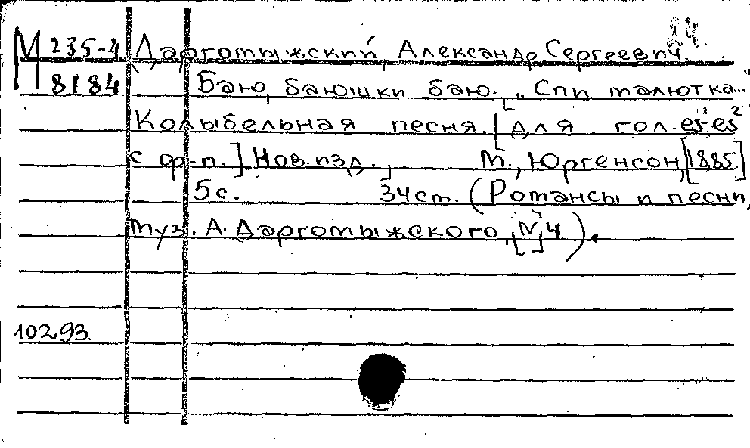 М 235-4 Даргомыжский, Александр Сергеевич
8184 Баю, баюшки баю. „Спи малютка..."
Колыбельная песня. [для гол. es¹-es²
с ф-п.] Нов. изд. М., Юргенсон, [1885]
5 с. 34 см. (Романсы и песни,
муз. А. Даргомыжского, [№] 4).
10293